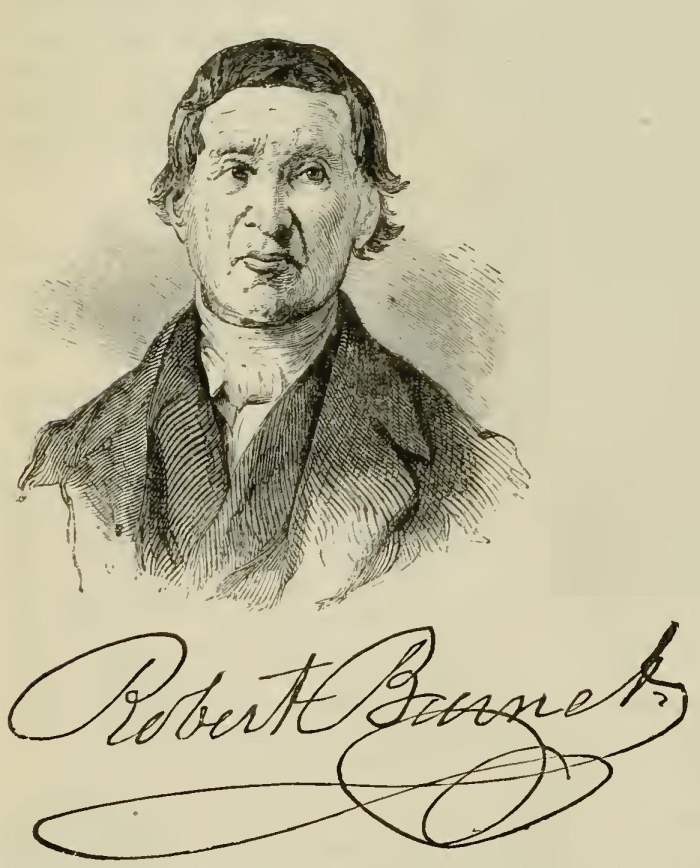 Robert Burnet